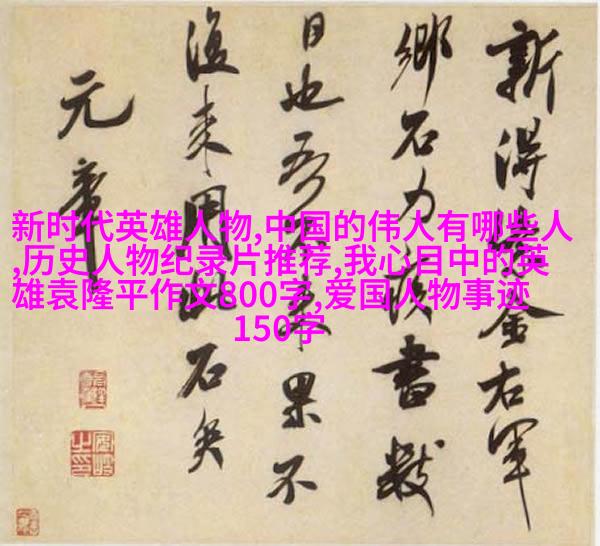 新得紫金右軍
鄉石力疾書數
日也吾不來果不
復來用此石矣
元章
新时代英雄人物,中国的伟人有哪些人
,历史人物纪录片推荐,我心目中的英
雄袁隆平作文800字,爱国人物事迹
150字